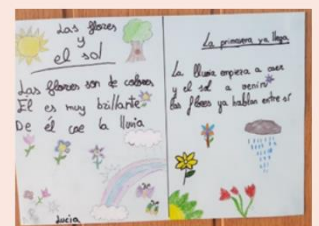 Las flores
y
el sol
Las flores son de colores
Él es muy brillante
De él cae la lluvia
Lucía
La primavera ya llega
La lluvia empieza a caer
y el sol a venir
las flores ya hablan entre sí